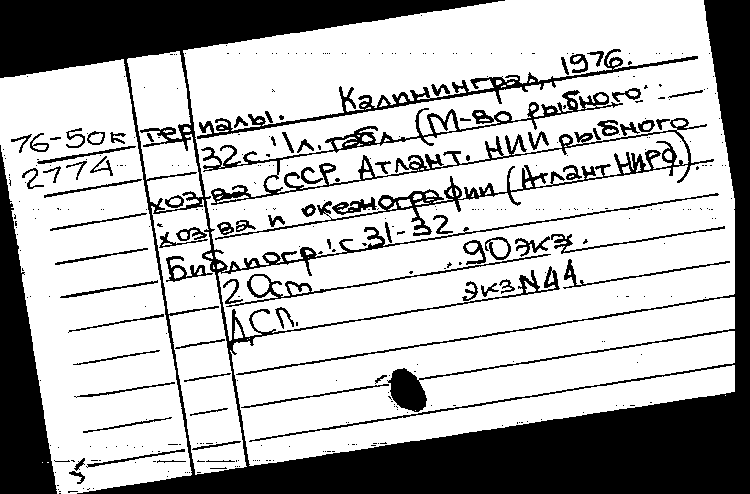 териалы. Калининград, 1976.
76-50к
2774
32с.; 1л. табл. (М-во рыбного
хоз-ва СССР. Атлант. НИИ рыбного
хоз-ва и океанографии (АтлантНИРО).
Библиогр.: с.31-32.
20см. 90экз.
ДСП. экз.N44.
5